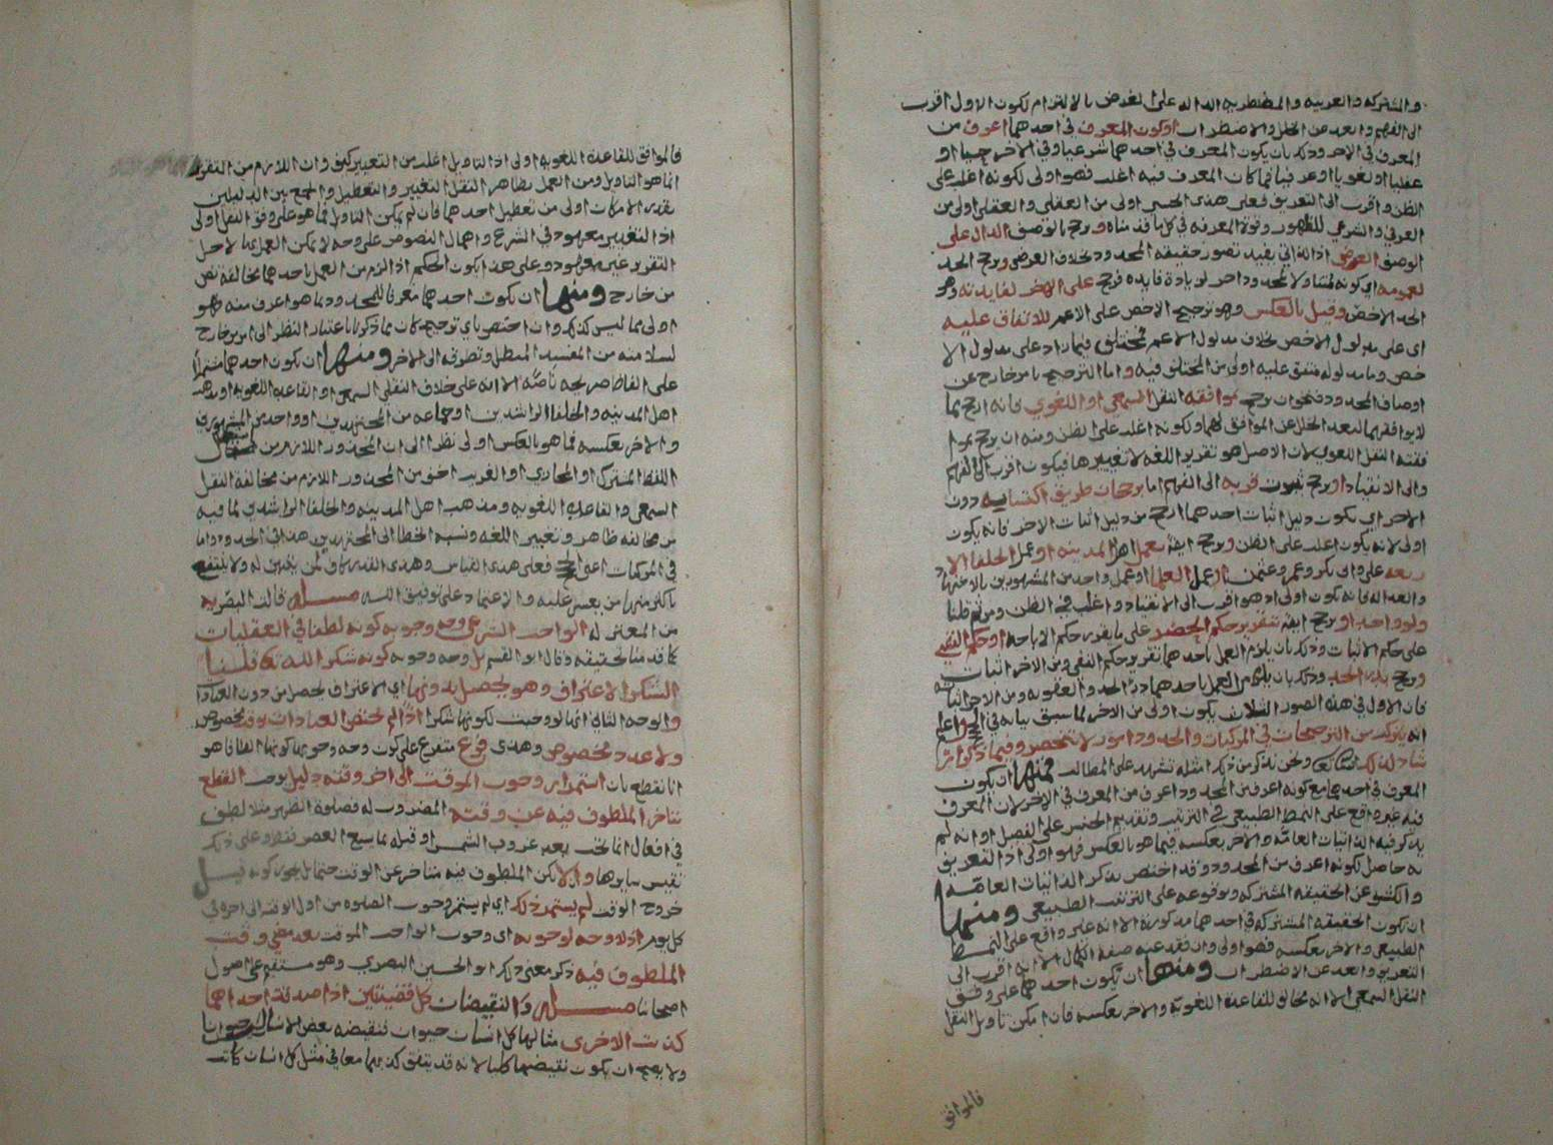 والمشتركه والعربيه والمضطربه الداله على الغرض بالالتزام لكون الاول اقرب
الى الفهم وابعد عن الخلل والاضطراب او كون المعرف في احدهما اعرف من
المعرف في الاخر وذلك بان يكون المعرف في احدهما شرعيا وفي الاخر حسيا او
عقليا او لغويا او عرفيا فما كان المعرف فيه اغلب فهو اولى لكونه اغلب على
الظن واقرب الى التعريف فعلى هذا الحسي اولى من العقلي والعقلي اولى من
العرفي والشرعي للظهور وقوة المعرفه في كل ما قدمناه ويرجح بالوصف الدال على
الوصف العرضي اذ الذاتي يفيد تصور حقيقة المحدود بخلاف العرضي ويرجح الحد
لعمومه اي كونه متناولا لمحدود اخر لزيادة فايده فيرجح على الاخر لفايدته وهو
الحد الاخص وقيل بالعكس وهو ترجيح الاخص على الاعم للاتفاق عليه
اى على مدلول الاخص بخلاف مدلول الاعم فمختلف فيما زاد على مدلول الا
خص وما مدلوله متفق عليه اولى من المختلف فيه واما الترجيح بامر خارج عن
اوصاف المحدود فنحو ان يرجح بموافقة النقل السمعي او اللغوي فانه ارجح مما
لا يوافقهما لبعد الخلل عن الموافق لهما ولكونه اغلب على الظن ومنه ان يرجح بموا
فقته النقل اللغوي لان الاصل هو تقرير اللغه لا تغييرها فيكون اقرب الى الفهم
والى الانقياد او يرجح ثبوت قربه الى الفهم اما برجحان طريق اكتسابه دون
الاخر اي يكون دليل اثبات احدهما ارجح من دليل اثبات الاخر فانه يكون
اولى لانه يكون اغلب على الظن ويرجح ايضا بعمل اهل المدينه او عمل الخلفا الار
بعه على وابى بكر وعمر وعثمن او عمل العلما او عمل واحد من المشهورين بالاجتهاد
والعداله فانه يكون اولى اذ هو اقرب الى الانقياد واغلب في الظن
ولو واحد او يرجح ايضا بتقرير حكم الحظر على ما يقرر حكم الاباحه او حكم النفي
على حكم الاثبات وذلك بان يلزم العمل باحدهما تقرير حكم النفي ومن الاخر اثبات
ويرجح بدرء الحد وذلك بان يلزم من العمل باحدهما درء الحد والعقوبه ومن الاخر اثباته
فان الاول في هذه الصور الثلاث يكون اولى من الاخر لما سبق بيانه في الحجج واعلم
انه يتركب من الترجيحات في المركبات والحدود امور لا تنحصر وفيما ذكر ارشاد
لذلك ونحن نذكر من ذلك امثله تشهد على المطالب فمنها ان يكون
المعرف في احدهما مع كونه اعرف من المحدود اعرف من المعرف في الاخر لان المعرف
فيه غير واقع على النمط الطبيعي في الترتيب وتقديم الجنس على الفصل او انه لم
يذكر فيه الذاتيات العامه والاخر بعكسه فيما هو بالعكس فهو اولى اذ التعريف
به حاصل لكونه اعرف من المحدود وقد اختص بذكر الذاتيات العامه
والكشف عن الحقيقه المشتركه وبوقوعه على الترتيب الطبيعي ومنها
ان يكون الحقيقه المشتركه في احدهما مذكورة الا انه غير واقع على النمط
الطبيعي والاخر بعكسه فهو اولى وان فقد عنه صفة الكمال الا انه اقرب الى
التعريف وابعد عن الاضطراب ومنها ان يكون احدهما على وفق
النقل السمعي الا انه مخالف للقاعدة اللغويه والاخر بعكسه فان امكن تاويل النقل
فالموافق
فالموافق للقاعدة اللغويه اولى اذ التاويل اغلب من التغيير كيف وان اللازم من التقرير
انما هو التاويل ومن العمل بظاهر النقل التغيير والتعطيل والجمع بين الدليلين
بقدر الامكان اولى من تعطيل احدهما فان لم يمكن التاويل فما هو على وفق النقل اولى
اذ التغيير معهود في الشرع واهمال النصوص على وجه لا يمكن العمل بها لاجل
التقرير غير معهود وعلى هذا يكون الحكم اذا لزم من العمل باحدهما مخالفة نص
من خارج ومنها ان يكون احدهما معرفا للمحدود بما هو اعرف منه وهو
اولى مما ليس كذلك وان اختص باي ترجيح كان مما ذكرنا باعتبار النظر الى امر خارج
لسلامته من المفسد المبطل وتطرقه الى الاخر ومنها ان يكون احدهما مشتملا
على الفاظ صريحه ناصه الا انه على خلاف النقلي السمعي او القاعده اللغويه او مذهب
اهل المدينه والخلفا الراشدين او جماعه من المجتهدين او واحد من المشهورين
والاخر بعكسه فما هو بالعكس اولى نظرا الى ان المحذور اللازم من استعمال
اللفظ المشترك او المجازي او الغريب اخف من المحذور اللازم من مخالفة النقل
السمعي والقاعده اللغويه ومذهب اهل المدينه والخلفا الراشدين لما فيه
من مخالفه ظاهر وتغيير اللغه ونسبه الخطا الى المجتهدين هذا في الحدود واما
في المركبات اعني الحجج فعلى هذا القياس وهذا القدر كاف لمن يكتفى له ولا ينتفع
باكثر منها من يعسر عليه والاعتماد على توفيق الله مسئله قالت البصريه
من المعتزله الواجب الشرعي وجه وجوبه كونه لطفا في العقليات
كما قدمنا تحقيقه وقال ابو القسم بل وجه وجوبه كونه شكرا لله تعالى قلنا
الشكر الاعتراف وهو يحصل بدونها اي الاعتراف يحصل من دون العبادات
والوجه الثاني انها لو وجبت لكونها شكرا اذًا لم تختص العبادات بوقت مخصوص
ولا عدد مخصوص وهذا فرع متفرع على كون وجه وجوبها كونها الطافا هو
انا نقطع بان استمرار وجوب الموقت الى اخر وقته دليل يوجب القطع
بتاخر الملطوف فيه عن وقته المضروب له فصلوة الظهر مثلا لطف
في افعال انما تجب بعد غروب الشمس او قبله بما يسع العصر فقط وعلى ذلك
نقيس سايرها والا يكن الملطوف فيه متاخر عن الوقت حتما بل يجوز كونه قبل
خروج الوقت لم يستمر ذلك اي لم يستمر وجوب الصلوه من اول الوقت الى اخره في
كل يوم اذ لا وجه لوجوبه اى وجوب الواجب الموقت بعد مضي وقت
الملطوف فيه ذكر معنى ذلك ابو الحسين البصري وهو مستقيم على اصول
اصحابنا مسئله والنقيضان كل قضيتين اذا صدقت احداهما
كذبت الاخرى مثالها كل انسان حيوان فنقيضه بعض الانسان ليس حيوانا
ولا يصح ان يكون نقيضها كليا لانه قد يتفق كذبهما معا في مثل كل انسان كاتب